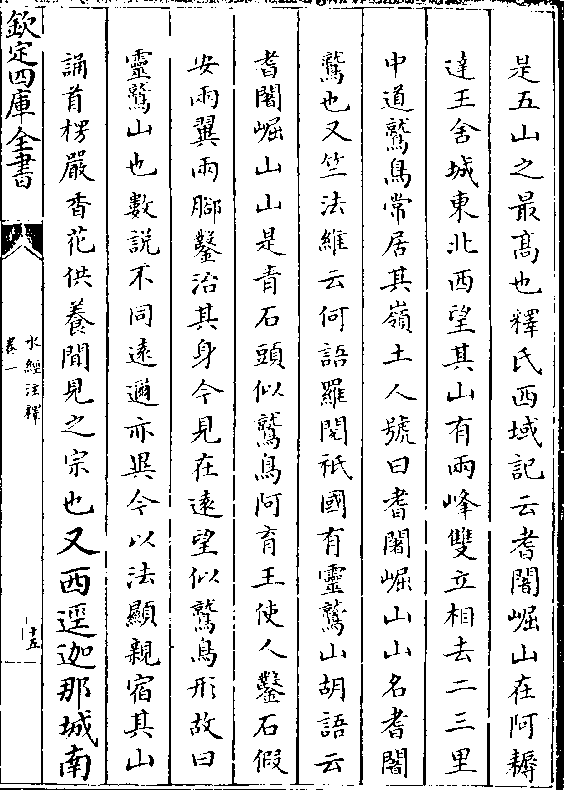 是五山之最髙也釋氏西域記云耆闍崛山在阿耨
達王舍城東北西望其山有兩峰雙立相去二三里
中道鷲鳥常居其嶺土人號曰耆闍崛山山名耆闍
鷲也又竺法維云何語羅閱祇國有靈鷲山胡語云
耆闍崛山山是青石頭似鷲鳥阿育王使人鑿石假
安兩翼兩腳鑿治其身今見在逺望似鷲鳥形故曰
靈鷲山也數說不同逺邇亦異今以法顯親宿其山
誦首楞嚴香花供養聞見之宗也又西逕迦那城南
欽定四庫全書
水經注釋
卷一
十五